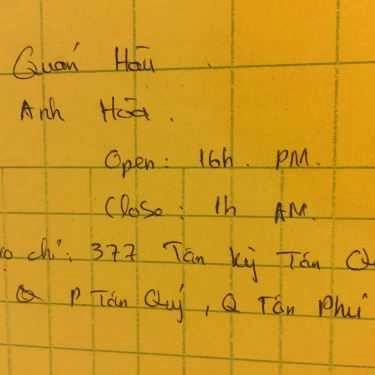 Quán Hàu
Anh Hòa.
Open: 16h. PM.
Close: 1h AM.
chỉ: 377 Tân Kỳ Tân Q
P. Tân Quý, Q Tân Phú